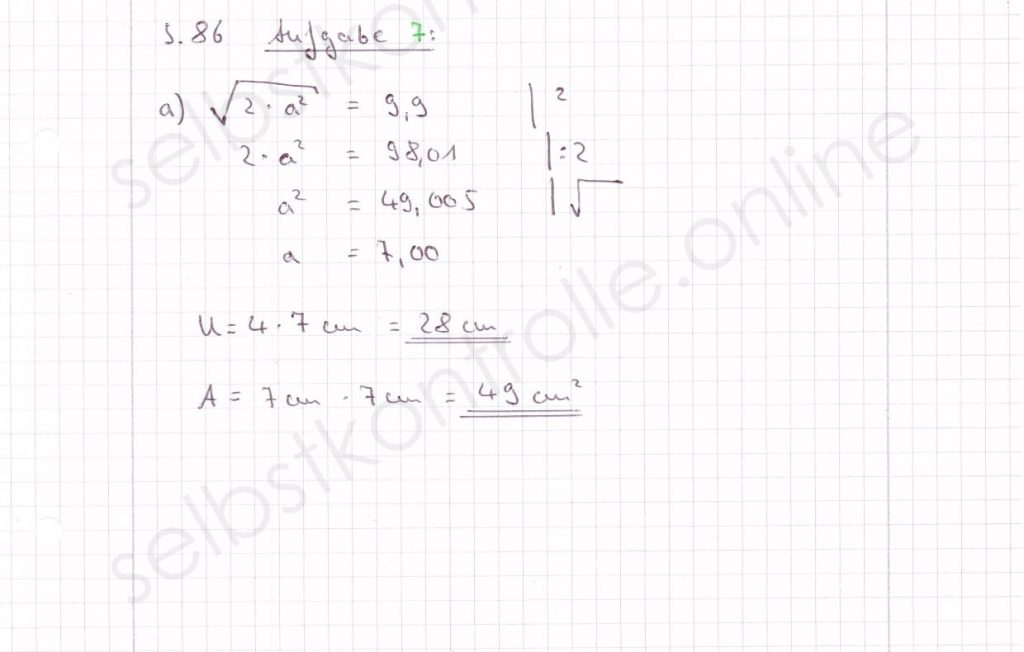 S. 86 Aufgabe 7:
a) √(2 · a²) = 9,9 | ²
2 · a² = 98,01 | : 2
a² = 49,005 | √
a = 7,00
U = 4 · 7 cm = 28 cm
A = 7 cm · 7 cm = 49 cm²
selbstkontrolle.online
selbstkontrolle.online